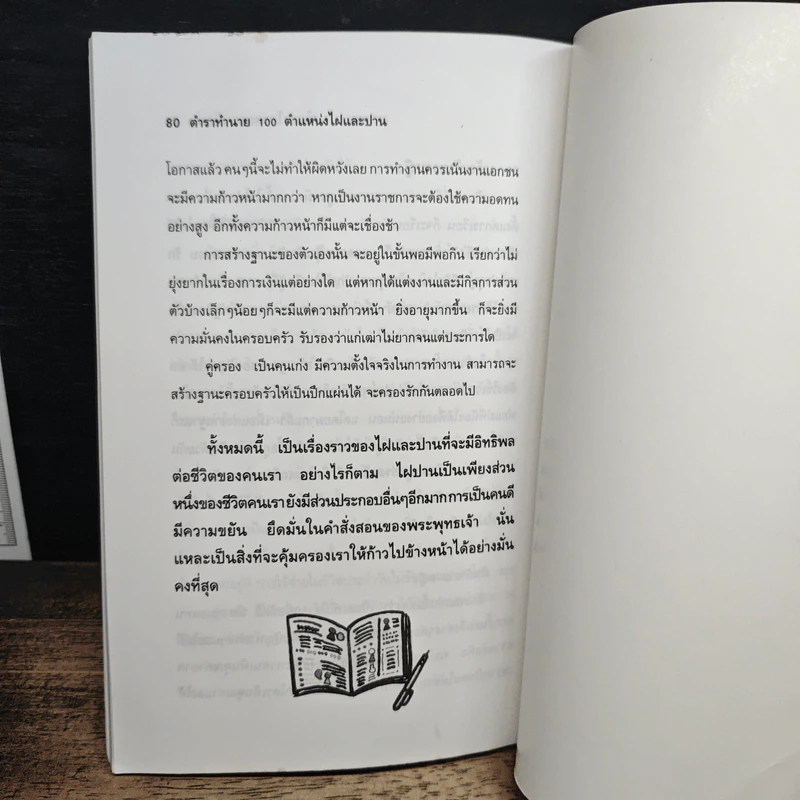 80 ตำราทำนาย 100 ตำแหน่งไฝและปาน
โอกาสแล้ว คนๆนี้จะไม่ทำให้ผิดหวังเลย การทำงานควรเน้นงานเอกชน
จะมีความก้าวหน้ามากกว่า หากเป็นงานราชการจะต้องใช้ความอดทน
อย่างสูง อีกทั้งความก้าวหน้าก็มีแต่จะเชื่องช้า
การสร้างฐานะของตัวเองนั้น จะอยู่ในขั้นพอมีพอกิน เรียกว่าไม่
ยุ่งยากในเรื่องการเงินแต่อย่างใด แต่หากได้แต่งงานและมีกิจการส่วน
ตัวบ้างเล็กๆน้อยๆก็จะมีแต่ความก้าวหน้า ยิ่งอายุมากขึ้น ก็จะยิ่งมี
ความมั่นคงในครอบครัว รับรองว่าแก่เฒ่าไม่ยากจนแต่ประการใด
คู่ครอง เป็นคนเก่ง มีความตั้งใจจริงในการทำงาน สามารถจะ
สร้างฐานะครอบครัวให้เป็นปึกแผ่นได้ จะครองรักกันตลอดไป
ทั้งหมดนี้ เป็นเรื่องราวของไฝและปานที่จะมีอิทธิพล
ต่อชีวิตของคนเรา อย่างไรก็ตาม ไฝปานเป็นเพียงส่วน
หนึ่งของชีวิตคนเรายังมีส่วนประกอบอื่นๆอีกมากการเป็นคนดี
มีความขยัน ยึดมั่นในคำสั่งสอนของพระพุทธเจ้า นั่น
แหละเป็นสิ่งที่จะคุ้มครองเราให้ก้าวไปข้างหน้าได้อย่างมั่น
คงที่สุด